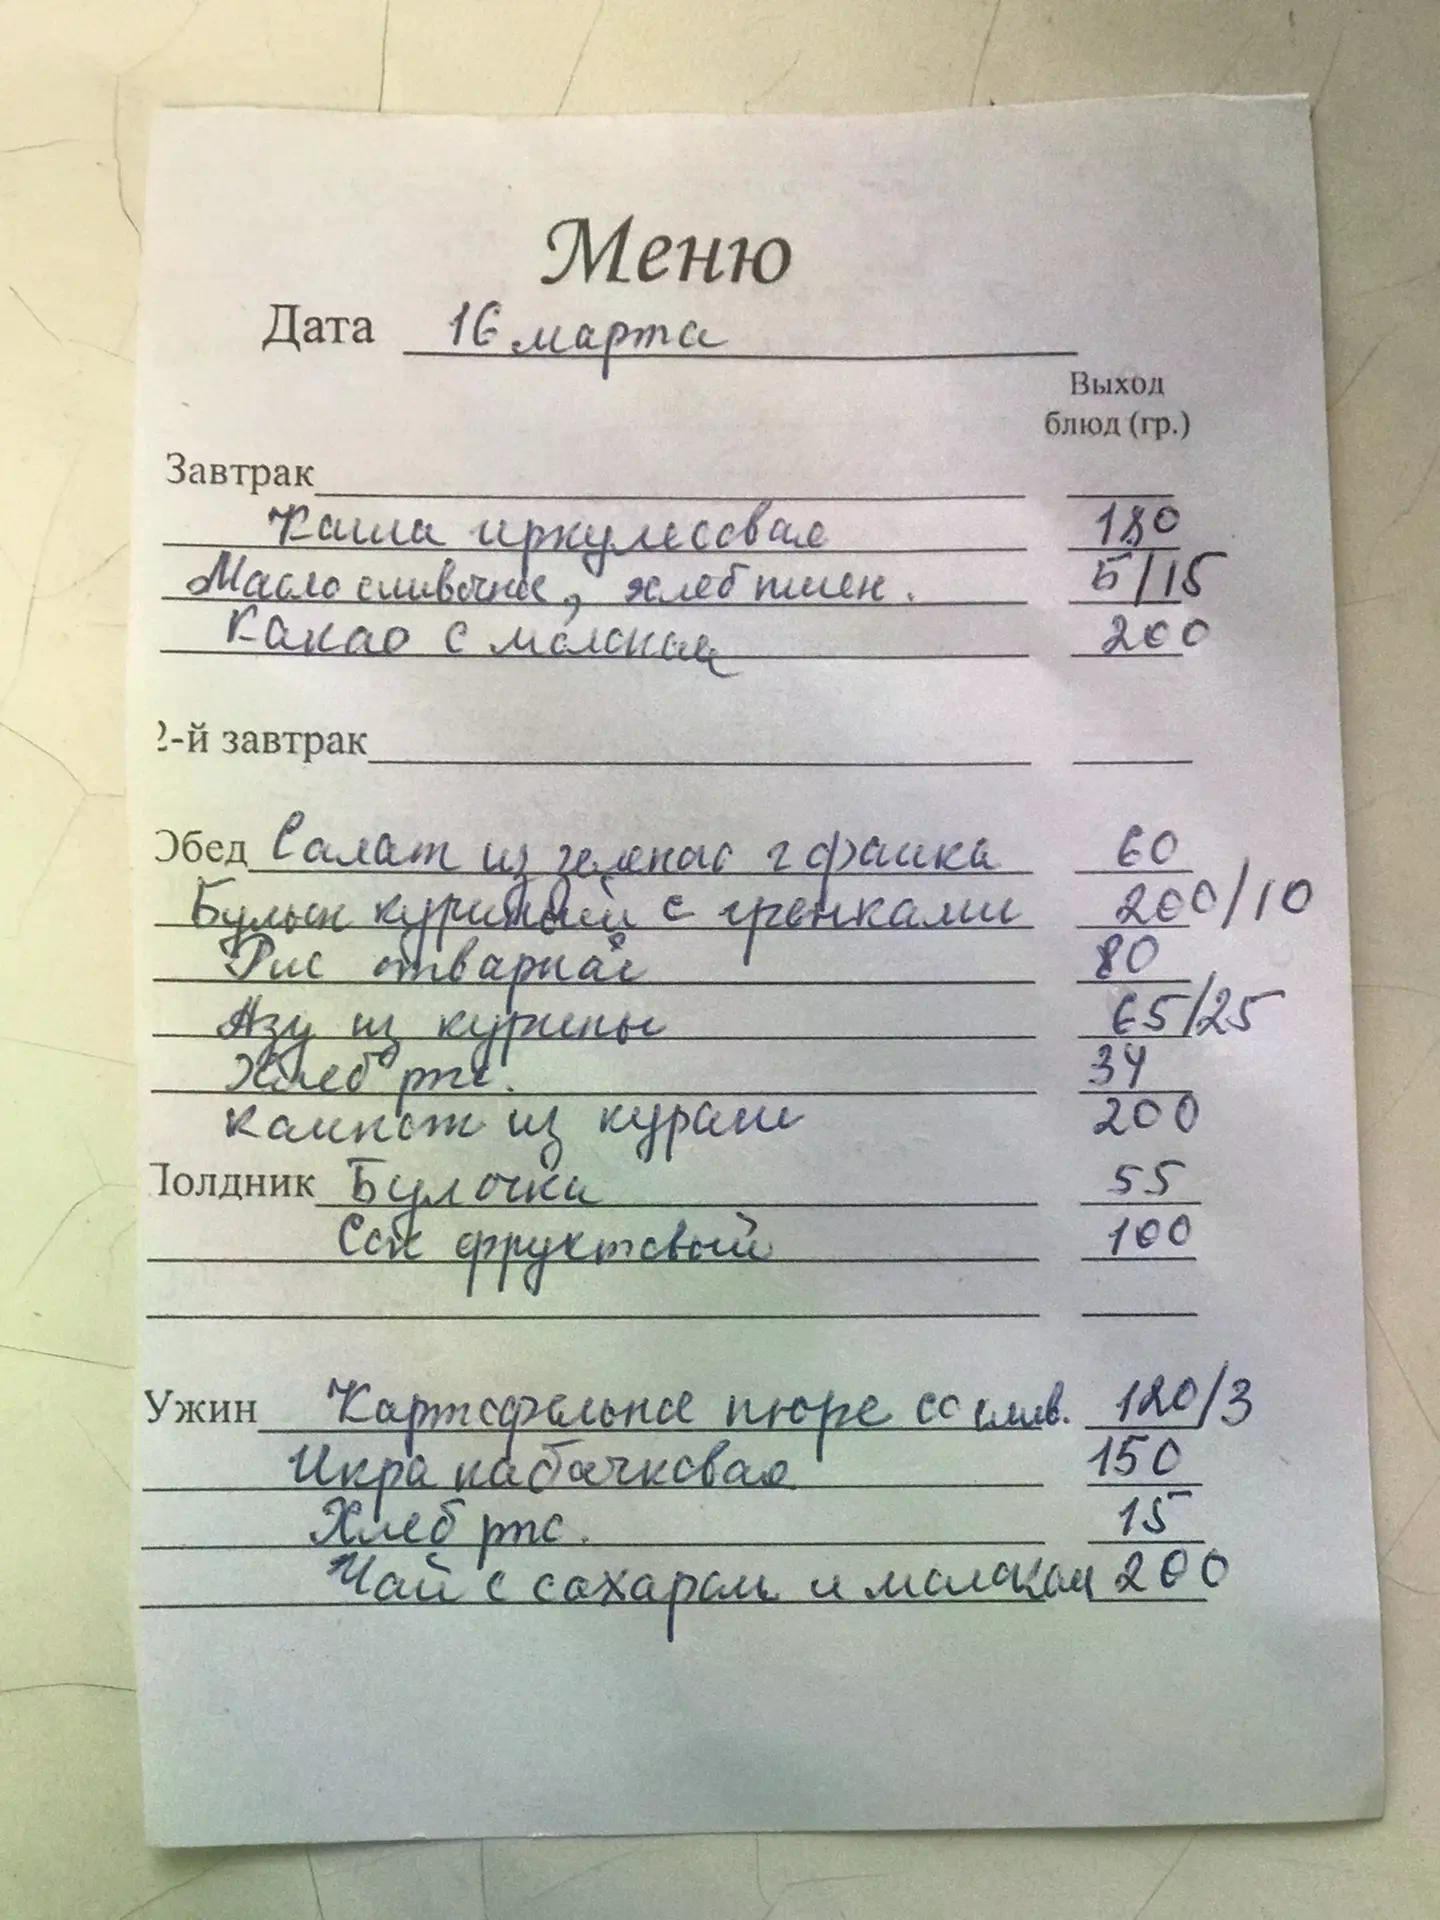 Меню
Дата 16 марта
Выход
блюд (гр.)
Завтрак
Каша иркулесовая 180
Масло сливочное, хлеб пшен. 5/15
Какао с молоком 200
2-й завтрак
Обед Салат из зеленого горошка 60
Бульон куриный с гренками 200/10
Рис отварной 80
Азу из курицы 65/25
Хлеб рж. 34
Компот из кураги 200
Полдник Булочка 55
Сок фруктовый 100
Ужин Картофельное пюре со слив. 120/3
Икра кабачковая 150
Хлеб рж. 15
Чай с сахаром и молоком 200